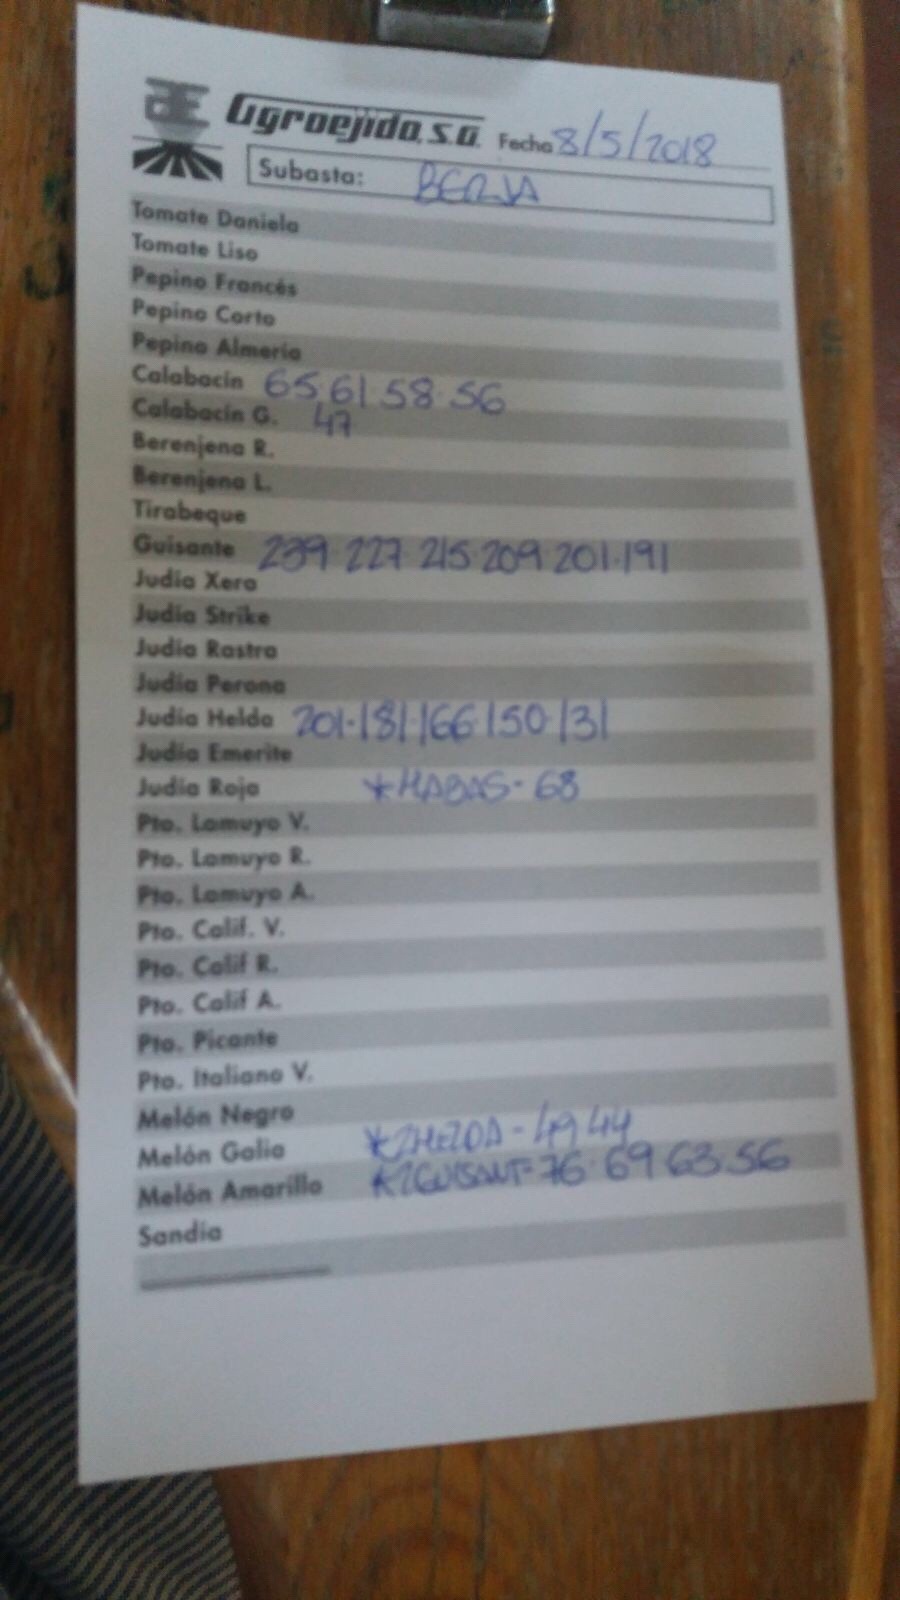 Agroejido, S.A. Fecha 8/5/2018
Subasta: BERJA
Tomate Daniela
Tomate Liso
Pepino Francés
Pepino Corto
Pepino Almería
Calabacín 65 61 58 56
Calabacín G. 47
Berenjena R.
Berenjena L.
Tirabeque
Guisante 239 227 215 209 201 191
Judía Xera
Judía Strike
Judía Rastra
Judía Perona
Judía Helda 201·181·166 150·131
Judía Emerite
Judía Roja *HABAS- 68
Pto. Lamuyo V.
Pto. Lamuyo R.
Pto. Lamuyo A.
Pto. Calif. V.
Pto. Calif R.
Pto. Calif A.
Pto. Picante
Pto. Italiano V.
Melón Negro
Melón Galia *2HELDA - 49 44
Melón Amarillo *2GUISANT- 76 69 63 56
Sandía